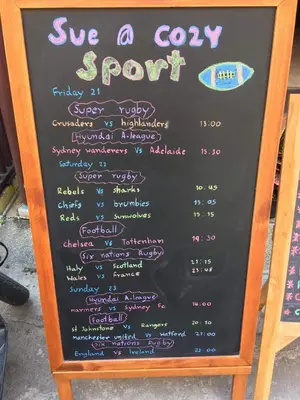 Sue @ COZY
Sport
Friday 21
Super rugby
Crusaders vs highlanders 15:00
Hyundai A-league
Sydney wanderers vs Adelaide 15:30
Saturday 22
Super rugby
Rebels vs sharks 10:45
Chiefs vs brumbies 13:05
Reds vs Sunwolves 15:15
Football
Chelsea vs Tottenham 19:30
Six nations Rugby
Italy vs Scotland 21:15
Wales vs France 23:45
Sunday 23
Hyundai A-league
mariners vs Sydney Fc 14:00
Football
St Johnstone vs Rangers
manchester united vs watford 21:00
Six nations Rugby
England vs Ireland 22:00